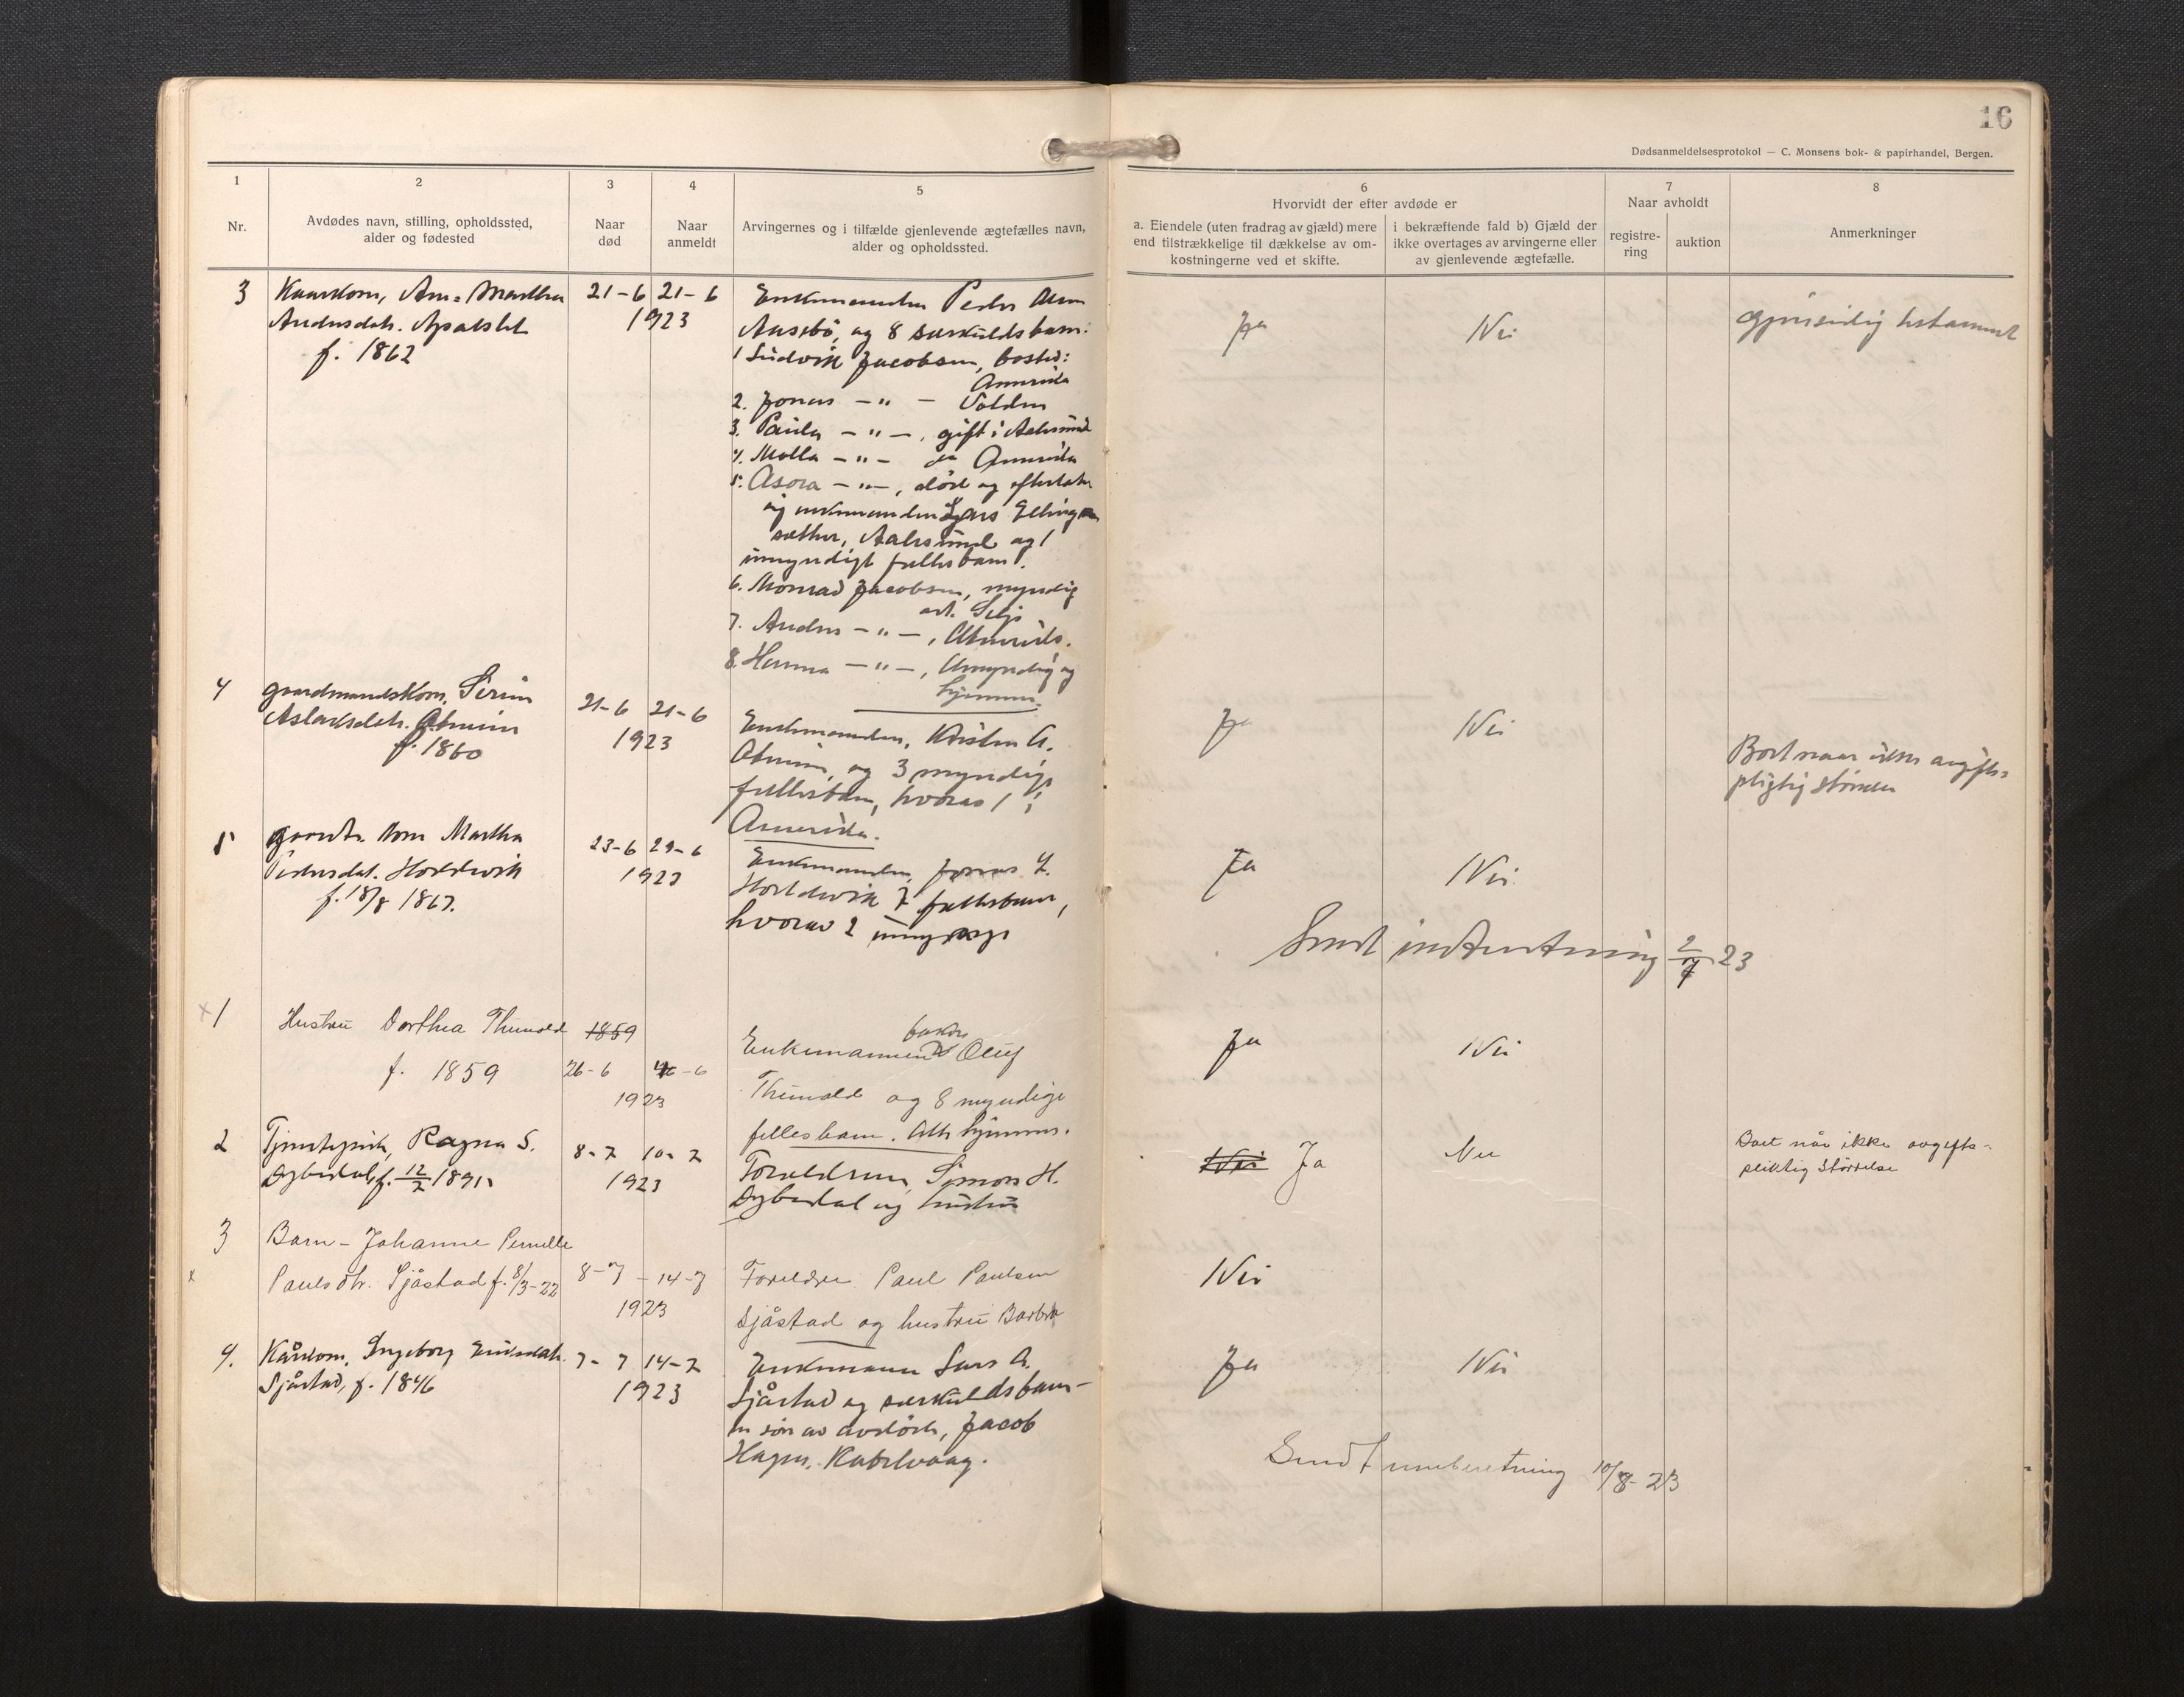 16
Dødsanmeldelsesprotokol — C. Monsens bok- & papirhandel, Bergen.
1
2
3
4
5
6
7
8
Nr.
Avdødes navn, stilling, opholdssted,
alder og fødested
Naar
død
Naar
anmeldt
Arvingernes og i tilfælde gjenlevende ægtefælles navn,
alder og opholdssted.
Hvorvidt der efter avdøde er
a. Eiendele (uten fradrag av gjæld) mere
end tilstrækkelige til dækkelse av om-
kostningerne ved et skifte.
i bekræftende fald b) Gjæld der
ikke overtages av arvingerne eller
av gjenlevende ægtefælle.
Naar avholdt
registre-
ring
auktion
Anmerkninger
3
Martha
f. 1862
21-6 21-6
1923
og 8 særkuldsbarn:
1 Ludvik Jacobsen, bosted:
Amerika
2. Jonas -"- Volden
3. Paula -"-, gift i Aalesund
4. Molla -"- Amerika
5. Asora -"-, død og efterlater
sig enkemanden Lars Elling
sæther, Aalesund og 1
umyndigt fellesbarn.
6. Monrad Jacobsen, myndig
7. Anders -"-, Amerika.
8. Hanna -"-, Umyndig og
hjemme.
Ja
Nei
4
Gaardmandskone,
Aslaksdtr.
f. 1860
21-6 21-6
1923
Enkemanden, Kristen A.
og 3 myndige
fellesbarn, hvorav 1 i
Amerika.
Ja
Nei
Boet naar ikke avgifts-
pligtig størrelse
5
kone Martha
Pedersdat.
f. 18/8 1867.
23-6 29-6
1923
Enkemanden, Jonas
7 fellesbarn,
hvorav 2
Ja
Nei
Sendt indberetning 2/7 23
1
Hustru Dorthea
f. 1859
1859
26-6
1923
Enkemannen Oluf
og 8 myndige
felles barn. Alle hjemme.
Ja
Nei
2
Ragna S.
f. 12/2 1891
8-7 10-7
1923
Foreldrene, Simon H.
og hustru
Nei Ja
Nei
Boet når ikke avgifts-
pliktig størrelse
3
Barn - Johanne Pernelle
Paulsdtr. Sjåstad f. 8/3-22
8-7 - 14-7
1923
Foreldre Paul Paulsen
Sjåstad og hustru Barbra
Nei
4.
Kårkone, Ingeborg
Sjåstad, f. 1846
7-7 14-7
1923
Enkemann Lars A.
Sjåstad og særkuldsbarn-
en søn av avdøde, Jacob
Hagen, Kabelvaag.
Ja
Nei
Sendt innberetning 10/8-23